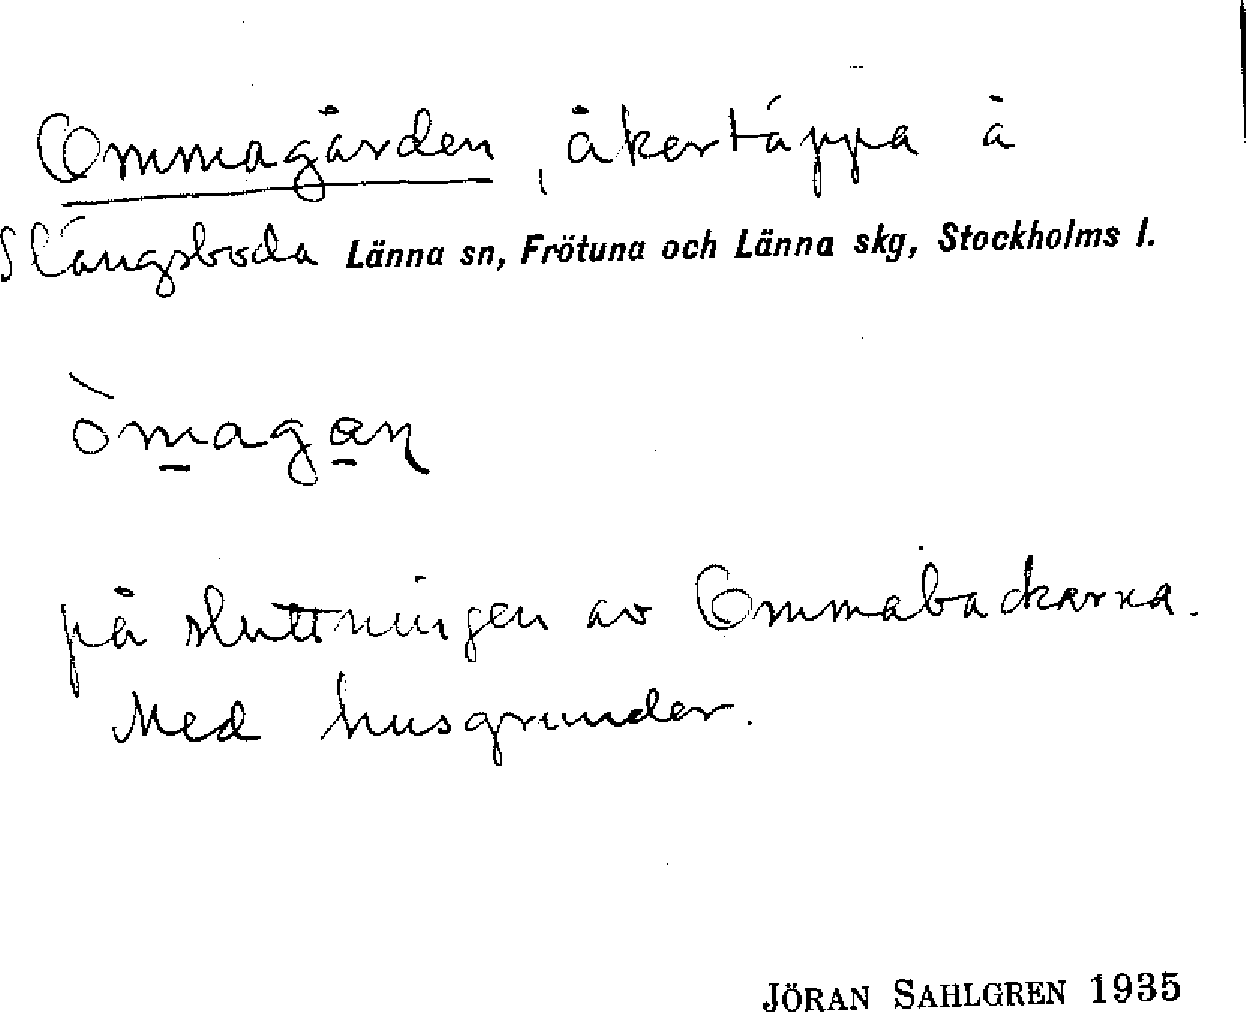 Ommagården, åkertäppa å
Slängsboda Länna sn, Frötuna och Länna skg, Stockholms l.
òmagan
på sluttningen av Ommabackarna.
Med husgrunder.
JÖRAN SAHLGREN 1935